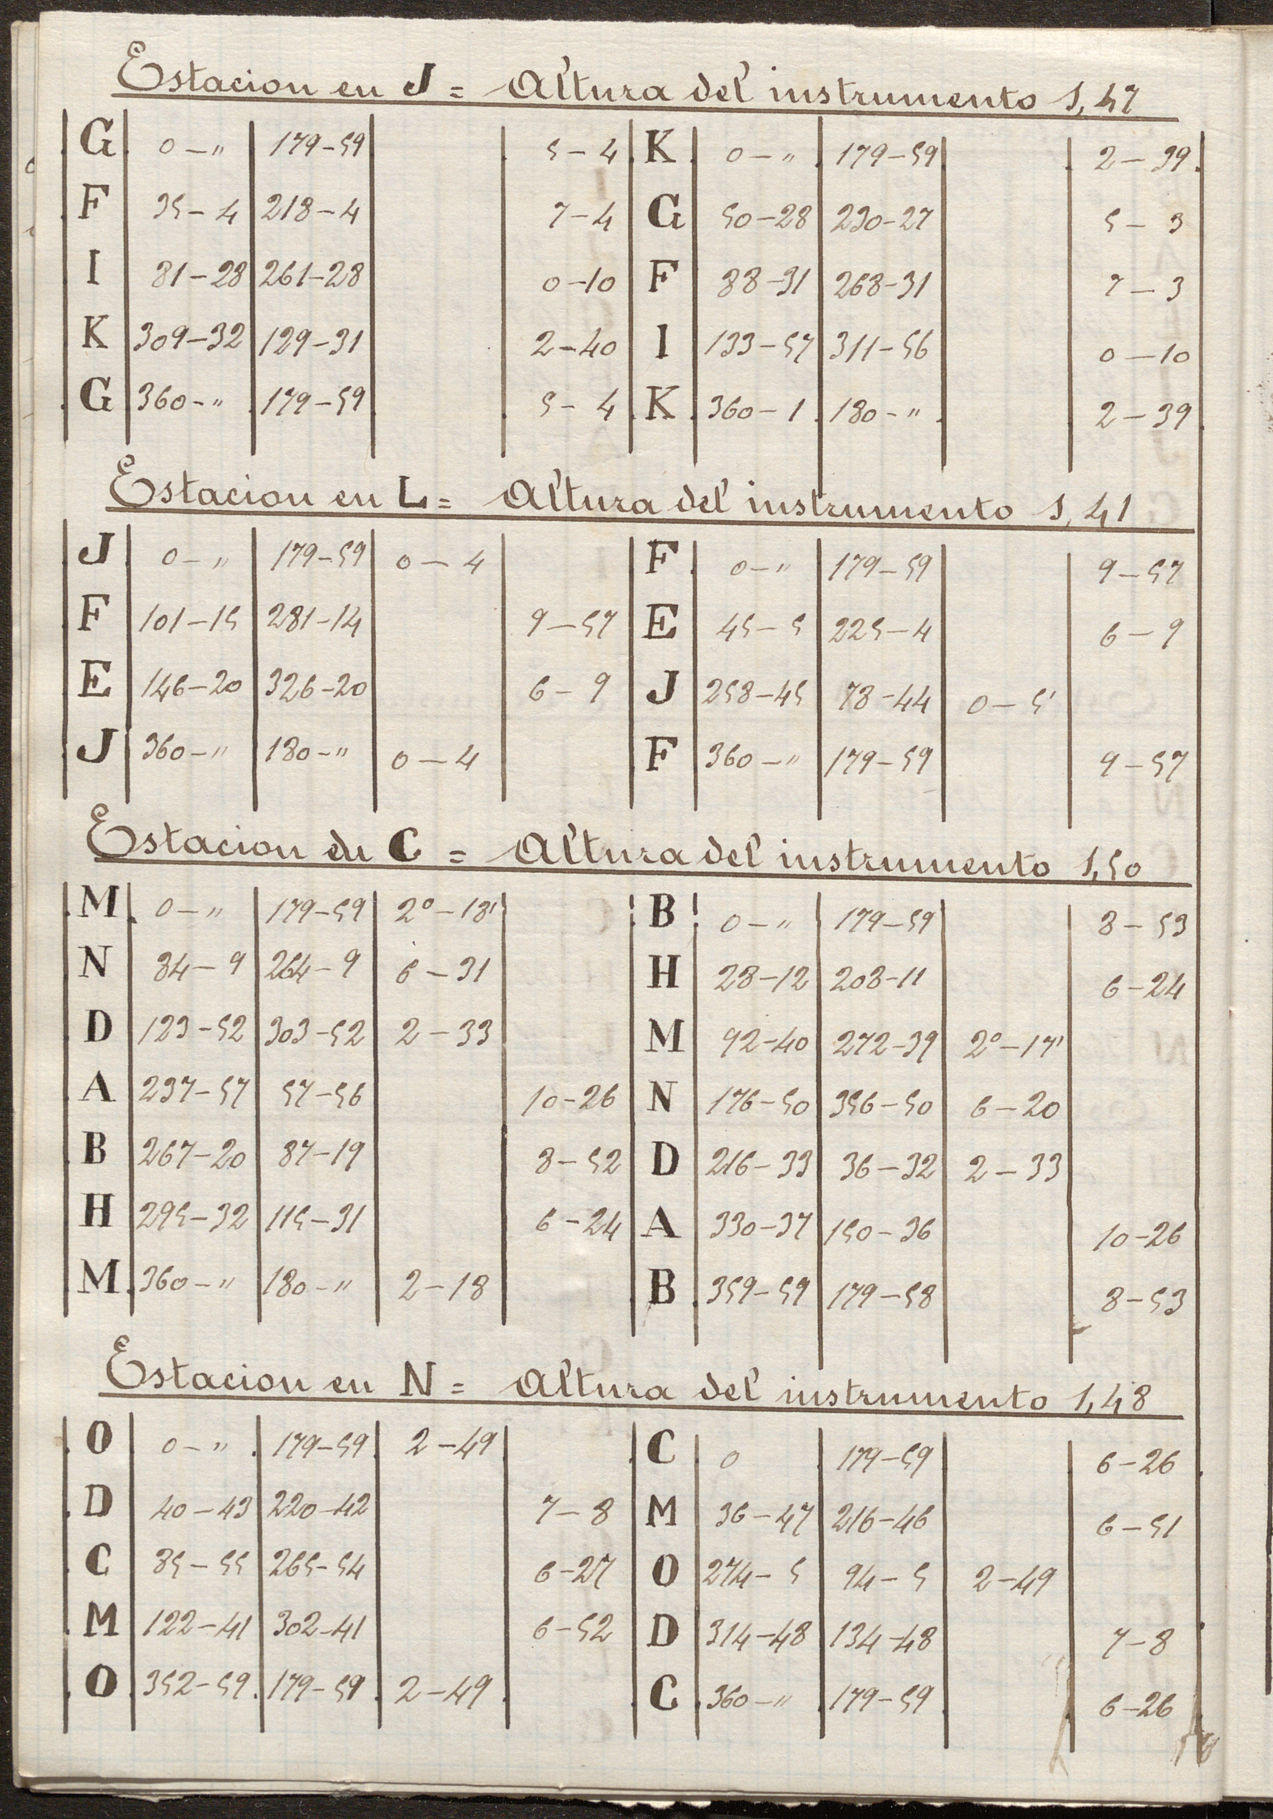 Estacion en J = Altura del instrumento 1,47
G 0-" 179-59 5-4 K 0-" 179-59 2-39
F 35-4 218-4 7-4 G 50-28 230-27 5-3
I 81-28 261-28 0-10 F 88-31 268-31 7-3
K 309-32 129-31 2-40 I 133-57 311-56 0-10
G 360-" 179-59 5-4 K 360-1 180-" 2-39
Estacion en L = Altura del instrumento 1,41
J 0-" 179-59 0-4 F 0-" 179-59 9-57
F 101-15 281-14 9-57 E 45-5 225-4 6-9
E 146-20 326-20 6-9 J 258-45 78-44 0-5'
J 360-" 180-" 0-4 F 360-" 179-59 9-57
Estacion en C = Altura del instrumento 1,50
M 0-" 179-59 2°-18' B 0-" 179-59 8-53
N 84-9 264-9 6-31 H 28-12 208-11 6-24
D 123-52 303-52 2-33 M 92-40 272-39 2°-17'
A 237-57 57-56 10-26 N 176-50 356-50 6-20
B 267-20 87-19 8-52 D 216-33 36-32 2-33
H 295-32 115-31 6-24 A 330-37 150-36 10-26
M 360-" 180-" 2-18 B 359-59 179-58 8-53
Estacion en N = Altura del instrumento 1,48
O 0-" 179-59 2-49 C 0 179-59 6-26
D 40-43 220-42 7-8 M 36-47 216-46 6-51
C 85-55 265-54 6-27 O 274-5 94-5 2-49
M 122-41 302-41 6-52 D 314-48 134-48 7-8
O 352-59 179-59 2-49 C 360-" 179-59 6-26